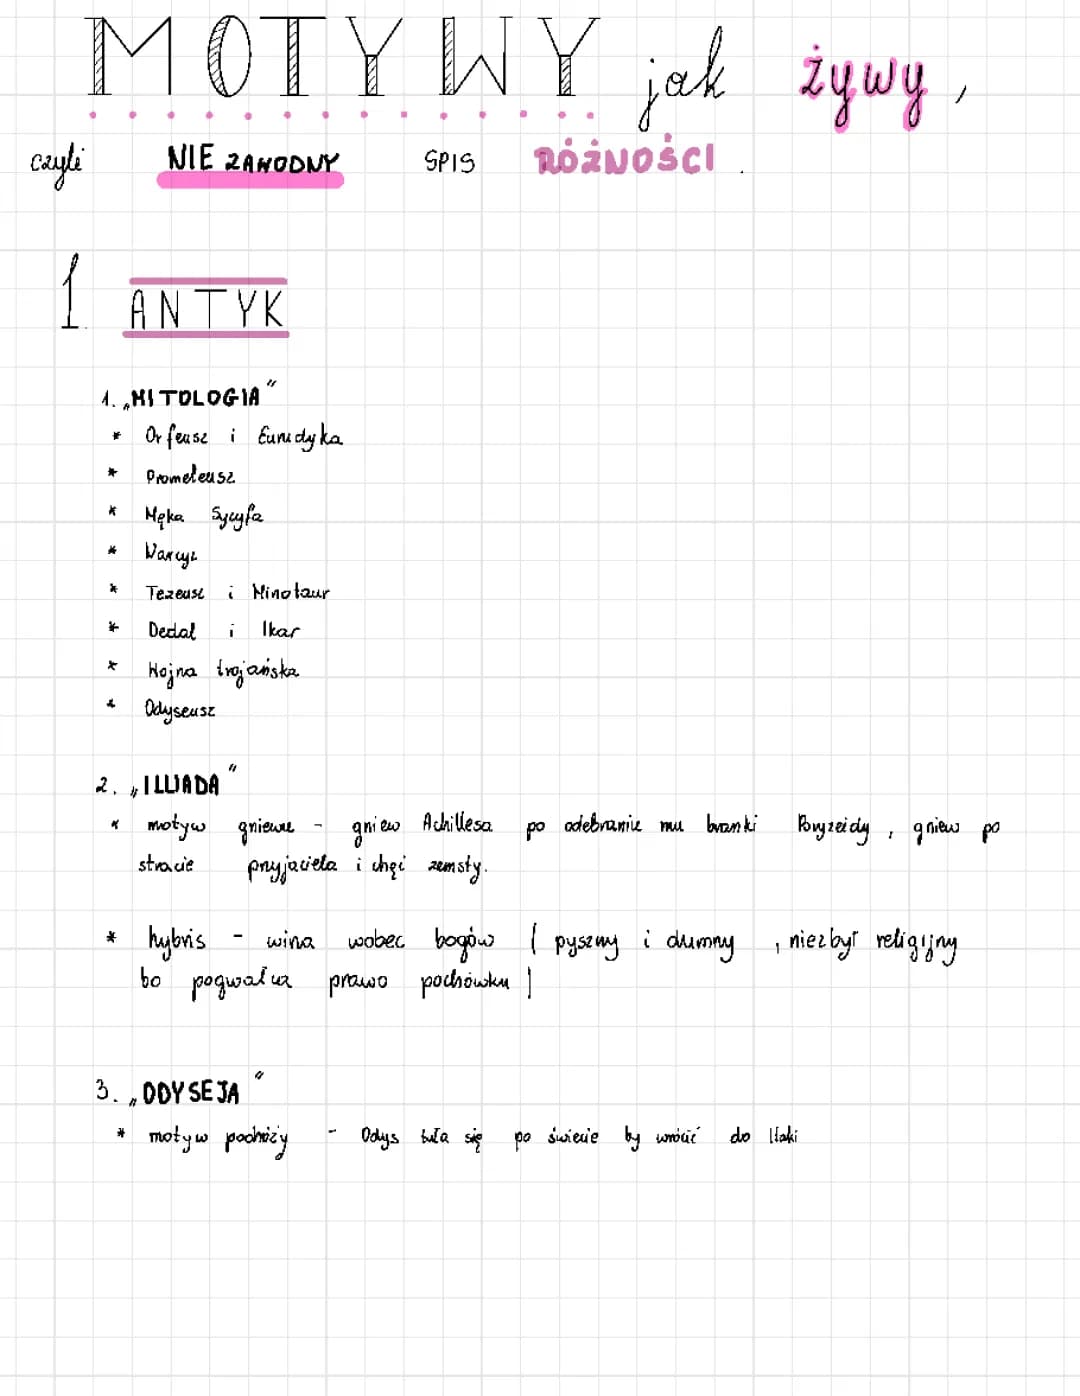 MOTYWY jak żywy,
czyli NIEZAWODNY SPIS RÓŻNOŚCI.
1. ANTYK
1. „MITOLOGIA"
* Orfeusz i Eurydyka
* Prometeusz
* Męka Syzyfa
* Narcyz
* Tezeusz i Minotaur
* Dedal i Ikar
* Wojna trojańska
* Odyseusz
2. „ILIADA"
* motyw gniewu - gniew Achillesa po odebraniu mu branki Bryzeidy, gniew po
stracie przyjaciela i chęć zemsty.
* hybris - wina wobec bogów ( pyszny i dumny , niezbyt religijny
bo pogwałcił prawo pochówku )
3. „ODYSEJA"
* motyw podróży - Odys tuła się po świecie by wrócić do Itaki